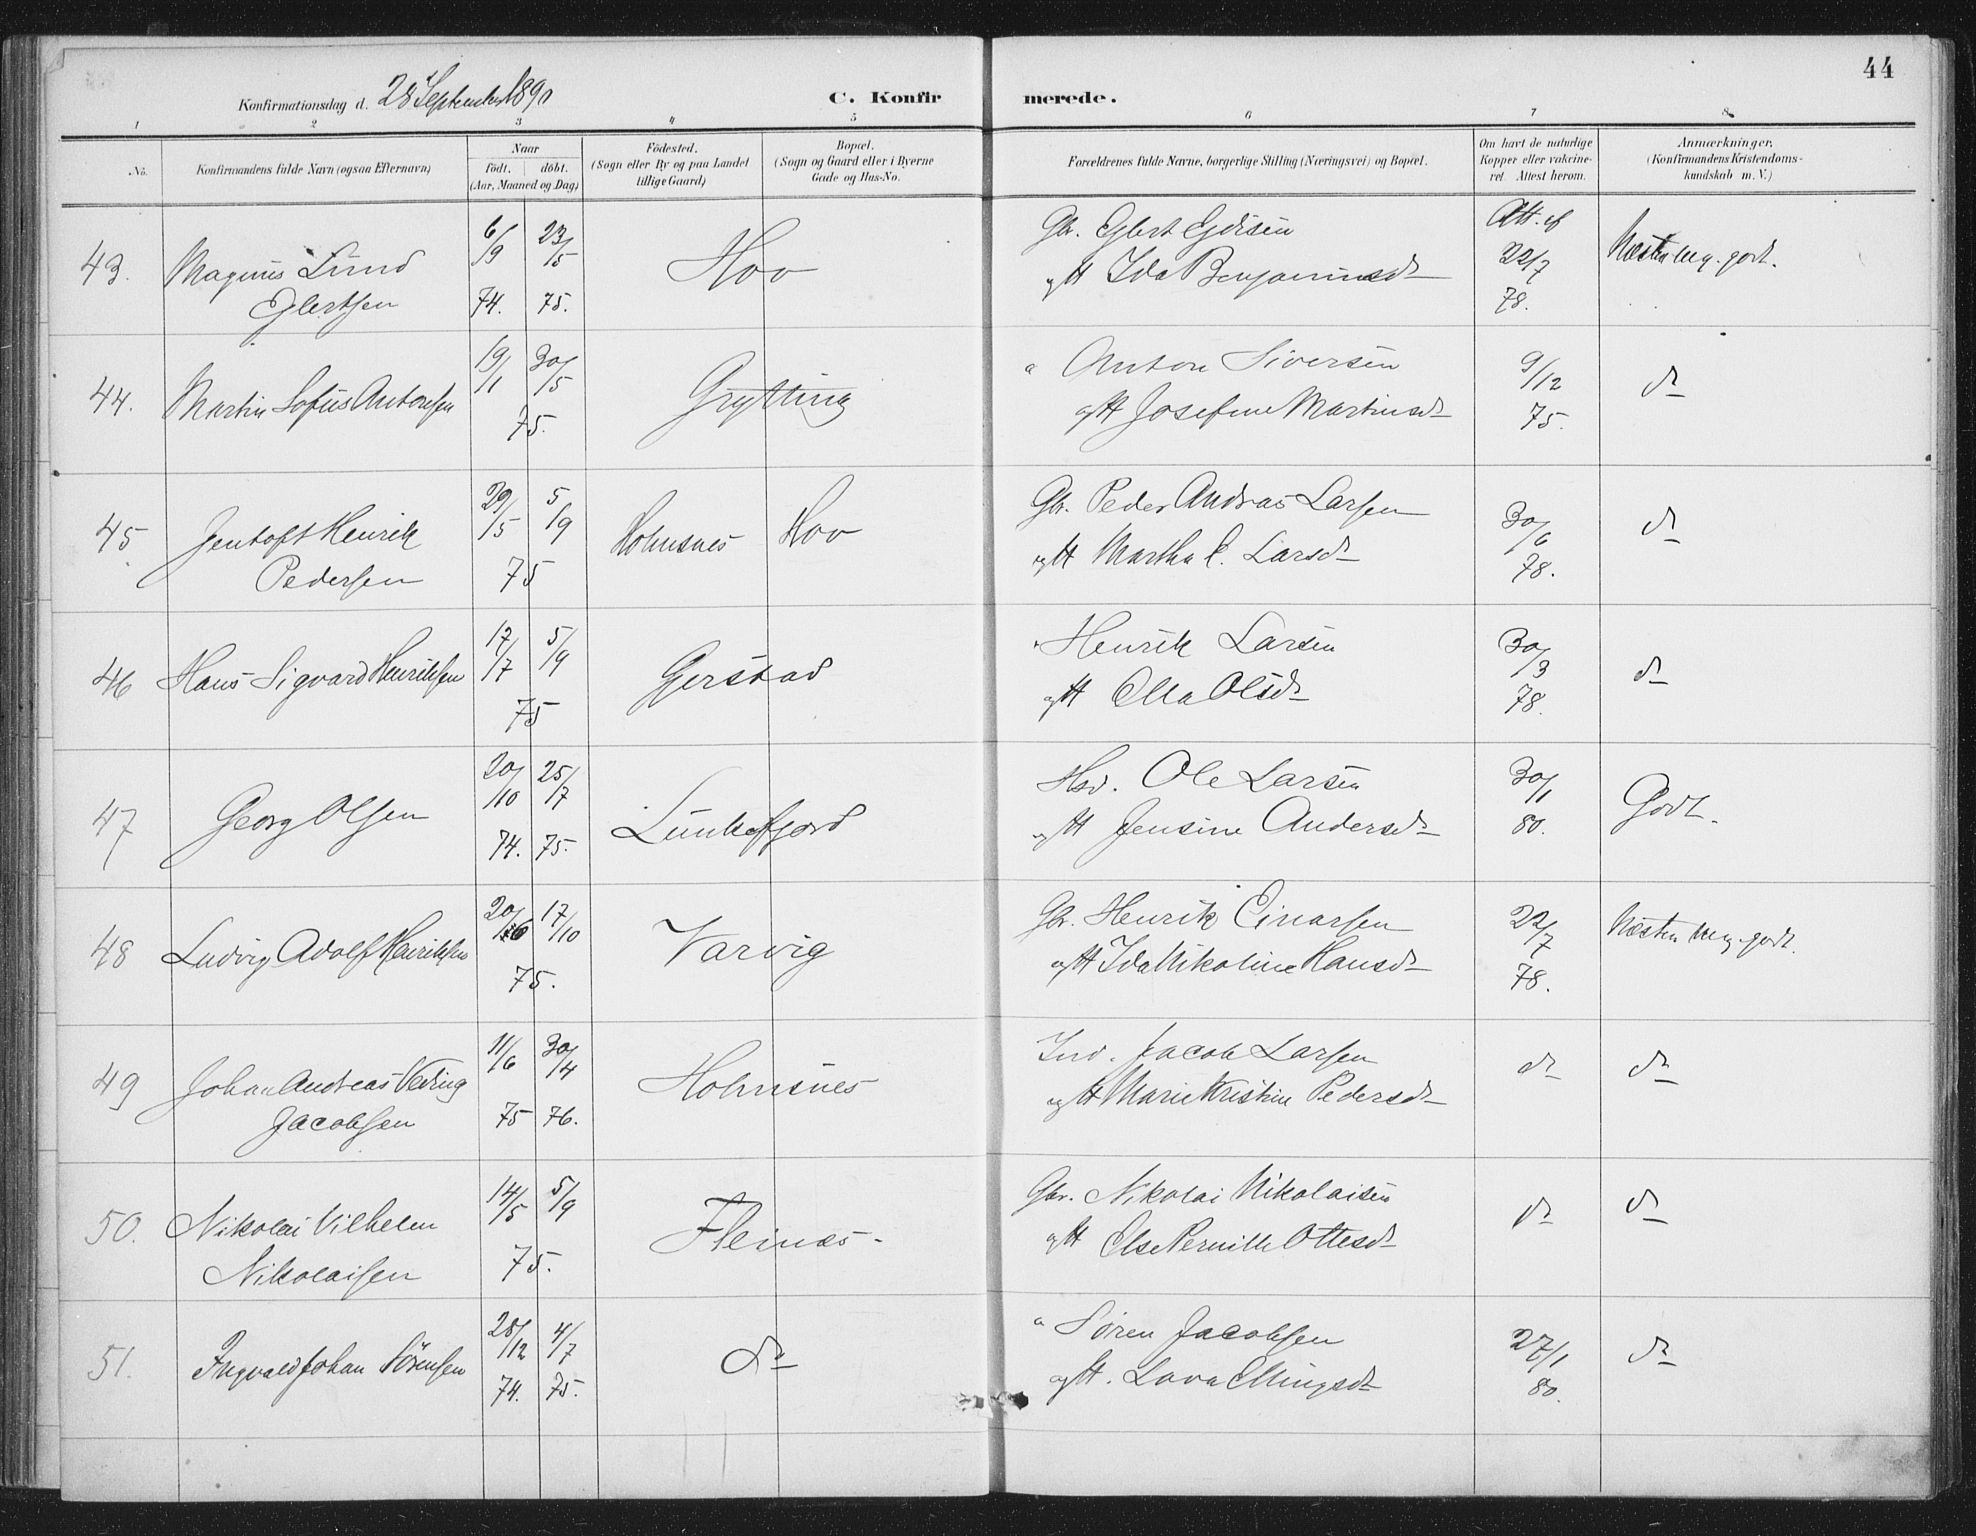 44
Konfirmationsdag d. 28 September 1890
C. Konfirmerede.
1 2 3 4 5 6 7 8
No. Konfirmandens fulde Navn (ogsaa Efternavn) Naar født. døbt. (Aar, Maaned og Dag) Fødested. (Sogn eller By og paa Landet tillige Gaard) Bopæl. (Sogn og Gaard eller i Byerne Gade og Hus-No. Forældrenes fulde Navne, borgerlige Stilling (Næringsvei) og Bopæl. Om havt de naturlige Kopper eller vakcineret. Attest herom. Anmærkninger. (Konfirmandens Kristendomskundskab m. V.)
43. Magnus Lund Eglertsen 6/9 74. 23/5 75. Hov Gbr. Eglert Ejdisen Att. af 22/7 78. Næsten meg. godt.
og H Ida Benjaminsd
44. Martin Sofus Antonsen 19/1 30/5 75. Grytting " Anton Siversen 9/12 75. do
og H Josefine Martinsd
45 Jentoft Henrik Pedersen 29/5 5/9 75 Holmsnes Hov Gbr. Peder Andreas Larsen 30/6 78. do
og H Martha E. Larsd
46 Hans Sigvard Henriksen 17/7 5/9 75 Gerstad " Henrik Larsen 30/3 78. do
og H Ella Olsd
47 Georg Olsen 20/10 74. 25/7 75. Lunkefjord Hsv. Ole Larsen 30/1 80. Godt.
og H Jensine Andersd
48 Ludvig Adolf Henriksen 20/6 17/10 75. Varvig Gbr. Henrik Einarsen 22/7 78. Næsten meg. godt.
og H Ida Nikoline Hansd
49 Johan Andreas Vedring Jacobsen 11/6 75 30/4 76. Holmsnes Ind. Jacob Larsen do do
og H Marie Kristine Pedersd
50. Nikolai Vilhelm Nikolaisen 14/5 5/9 75. Fleines Gbr. Nikolai Nikolaisen do do
og H Else Pernille Ottesd
51. Ingvald Johan Sørensen 28/12 74. 4/7 75. do " Søren Jacobsen 27/1 80. do
og H. Lava Ellingsd